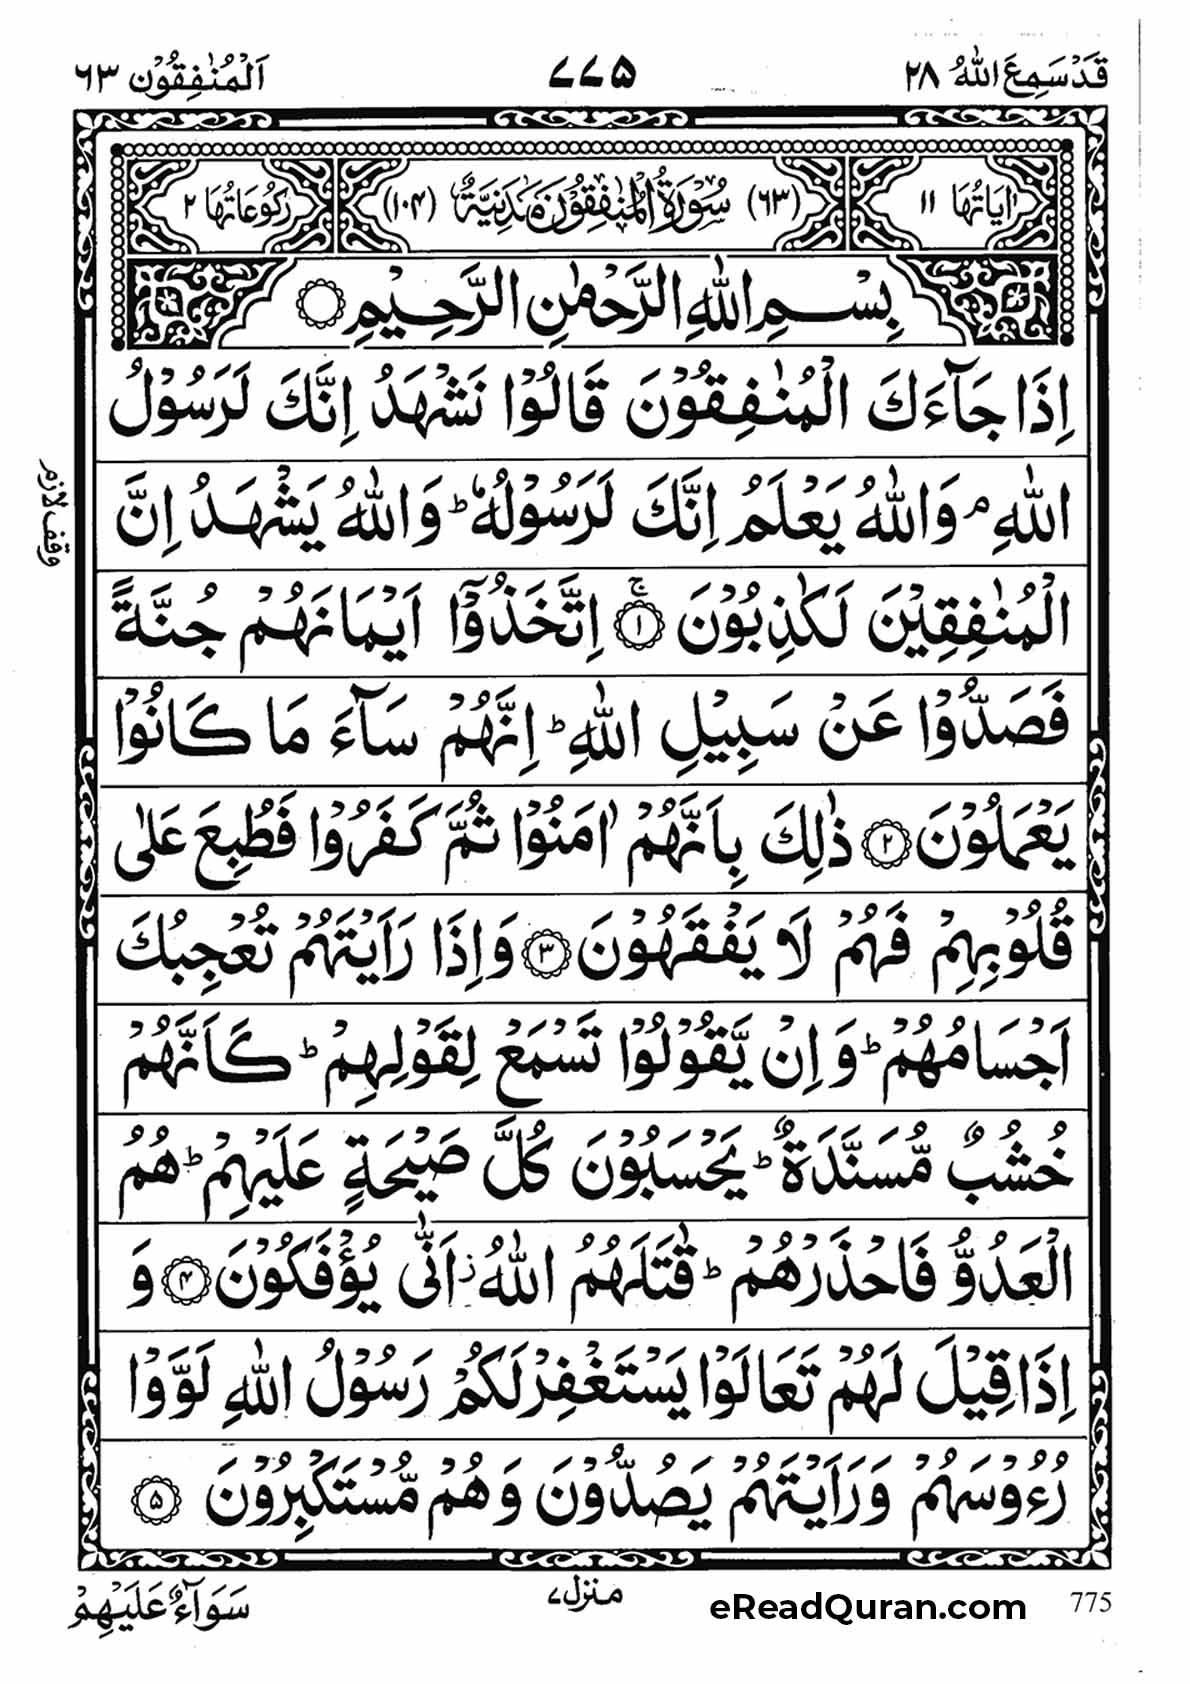 قَدْ سَمِعَ اللّٰهُ ٢٨
٧٧٥
اَلْمُنٰفِقُوْن ٦٣
اٰيَاتُهَا ١١
(٦٣) سُوْرَةُ الْمُنٰفِقُوْنَ مَدَنِيَّةٌ (١٠٤)
رُكُوْعَاتُهَا ٢
بِسْمِ اللّٰهِ الرَّحْمٰنِ الرَّحِيْمِ ۝
اِذَا جَآءَكَ الْمُنٰفِقُوْنَ قَالُوْا نَشْهَدُ اِنَّكَ لَرَسُوْلُ
اللّٰهِ ۘ وَاللّٰهُ يَعْلَمُ اِنَّكَ لَرَسُوْلُهٗ ؕ وَاللّٰهُ يَشْهَدُ اِنَّ
وقف لازم
الْمُنٰفِقِيْنَ لَكٰذِبُوْنَ ۚ ۝١ اِتَّخَذُوْۤا اَيْمَانَهُمْ جُنَّةً
فَصَدُّوْا عَنْ سَبِيْلِ اللّٰهِ ؕ اِنَّهُمْ سَآءَ مَا كَانُوْا
يَعْمَلُوْنَ ۝٢ ذٰلِكَ بِاَنَّهُمْ اٰمَنُوْا ثُمَّ كَفَرُوْا فَطُبِعَ عَلٰى
قُلُوْبِهِمْ فَهُمْ لَا يَفْقَهُوْنَ ۝٣ وَاِذَا رَاَيْتَهُمْ تُعْجِبُكَ
اَجْسَامُهُمْ ؕ وَاِنْ يَّقُوْلُوْا تَسْمَعْ لِقَوْلِهِمْ ؕ كَاَنَّهُمْ
خُشُبٌ مُّسَنَّدَةٌ ؕ يَحْسَبُوْنَ كُلَّ صَيْحَةٍ عَلَيْهِمْ ؕ هُمُ
الْعَدُوُّ فَاحْذَرْهُمْ ؕ قٰتَلَهُمُ اللّٰهُ ؗ اَنّٰى يُؤْفَكُوْنَ ۝٤ وَ
اِذَا قِيْلَ لَهُمْ تَعَالَوْا يَسْتَغْفِرْ لَكُمْ رَسُوْلُ اللّٰهِ لَوَّوْا
رُءُوْسَهُمْ وَرَاَيْتَهُمْ يَصُدُّوْنَ وَهُمْ مُّسْتَكْبِرُوْنَ ۝٥
سَوَآءٌ عَلَيْهِمْ
منزل ٧
eReadQuran.com
775